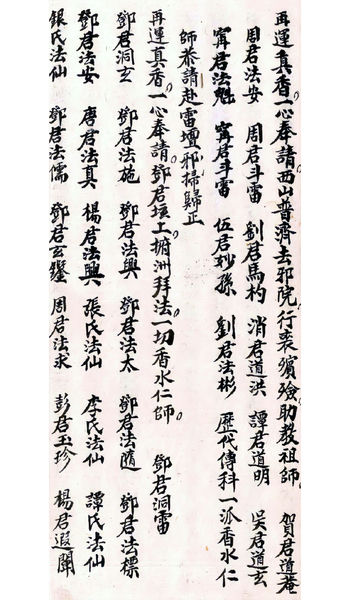 再運真香一心奉請西山普濟去邪院行喪殯殮助教祖師 賀君道菴
周君法安 周君斗雷 劉君馬杓 消君道洪 譚君道明 吴君道玄
甯君法魁 甯君斗雷 伍君妙孫 劉君法彬 歷代傳科一派香水仁
師恭請赴雷壇邪掃歸正
再運真香一心奉請鄧君垓上 洲拜法一切香水仁師 鄧君洞雷
鄧君洞玄 鄧君法施 鄧君法興 鄧君法太 鄧君法隨 鄧君法標
鄧君法安 唐君法真 楊君法興 張氏法仙 李氏法仙 譚氏法仙
銀氏法仙 鄧君法儒 鄧君玄鑾 周君法求 彭君玉珍 楊君遐闡